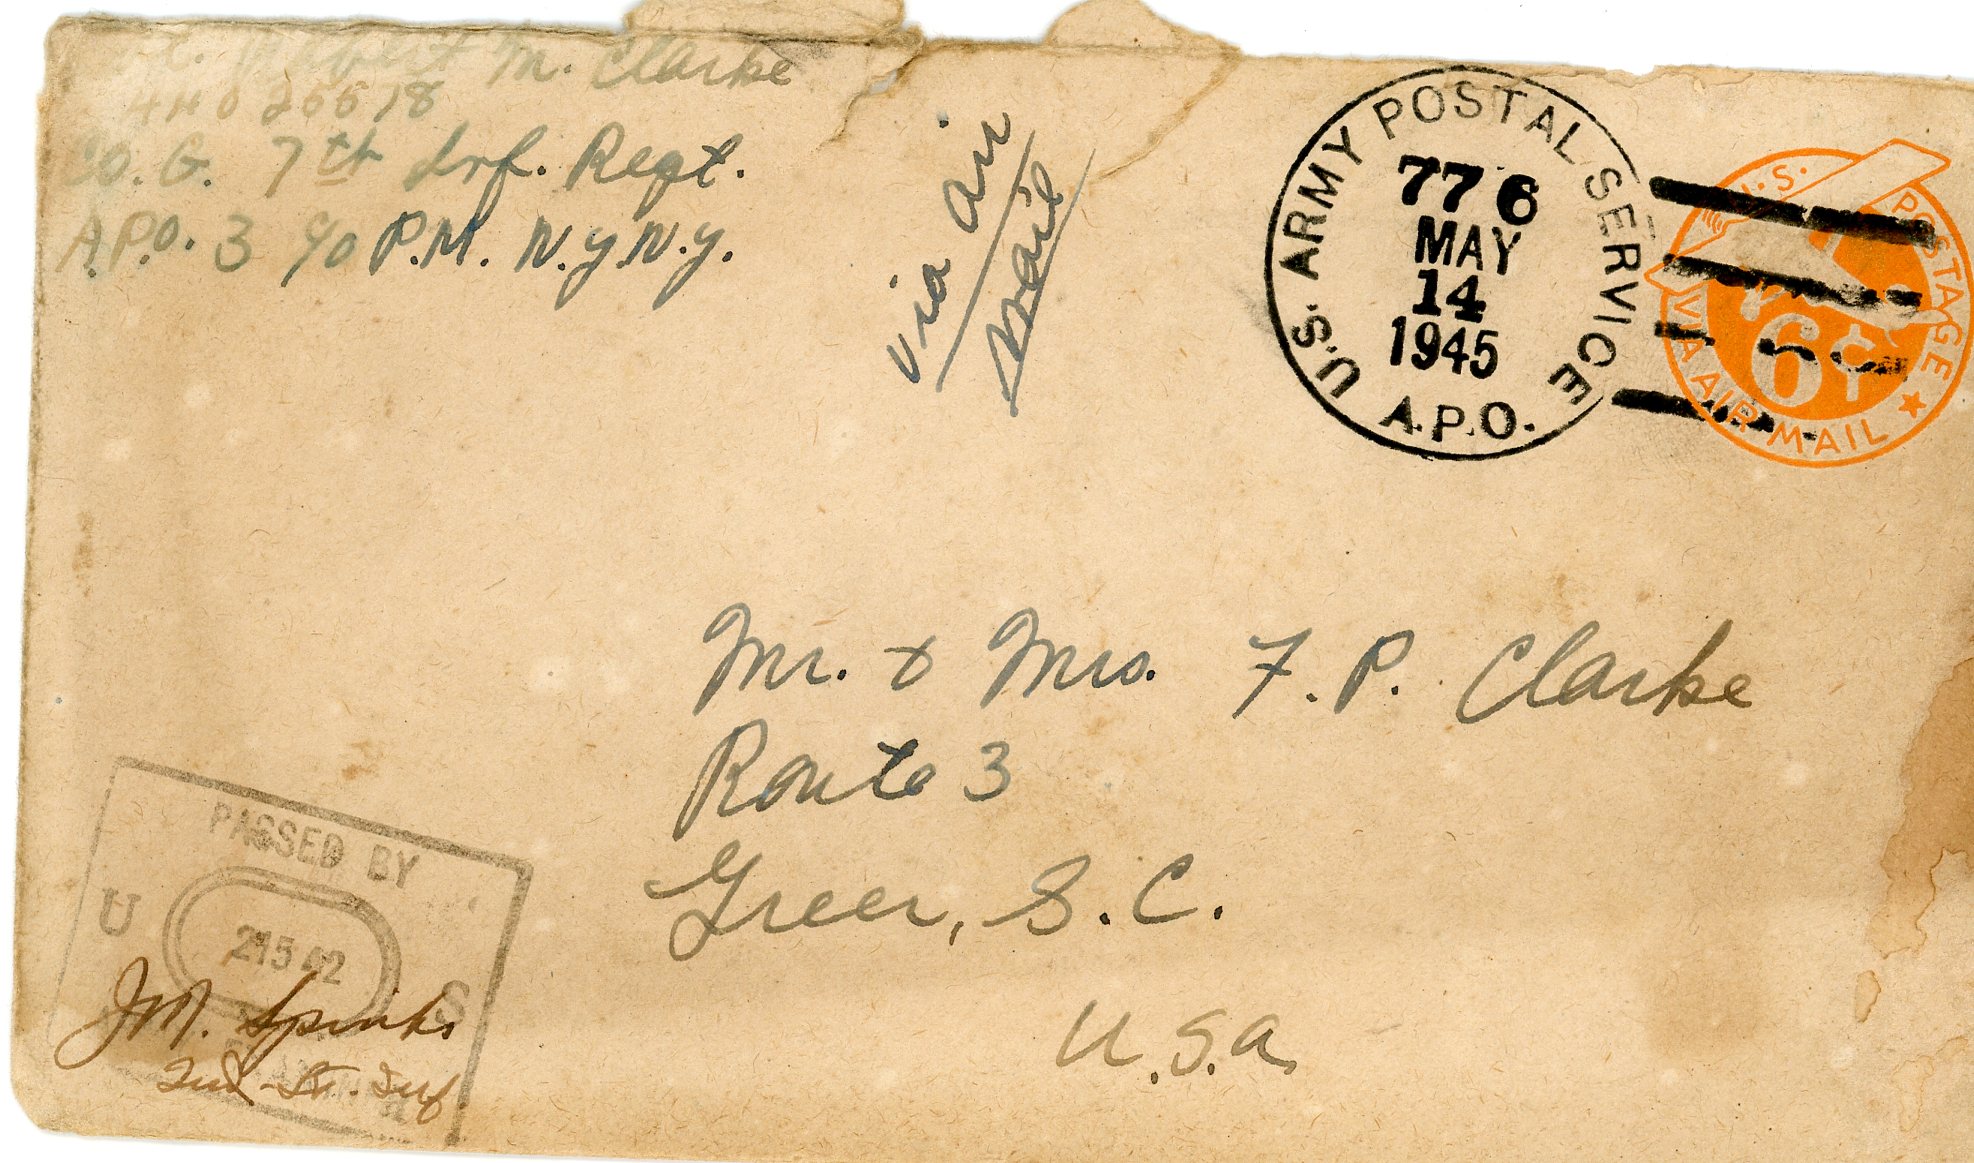 Robert M. Clarke
44026678
Co. G. 7th Inf. Regt.
A.P.O. 3 c/o P.M. N.Y.N.Y.
via air
mail
U.S. ARMY POSTAL SERVICE
776
MAY
14
1945
A.P.O.
U.S. POSTAGE
6¢
VIA AIR MAIL
Mr. & Mrs. F. P. Clarke
Route 3
Greer, S.C.
U.S.A.
PASSED BY
U S
21542
J.M. Spinks
2nd Lt. Inf.